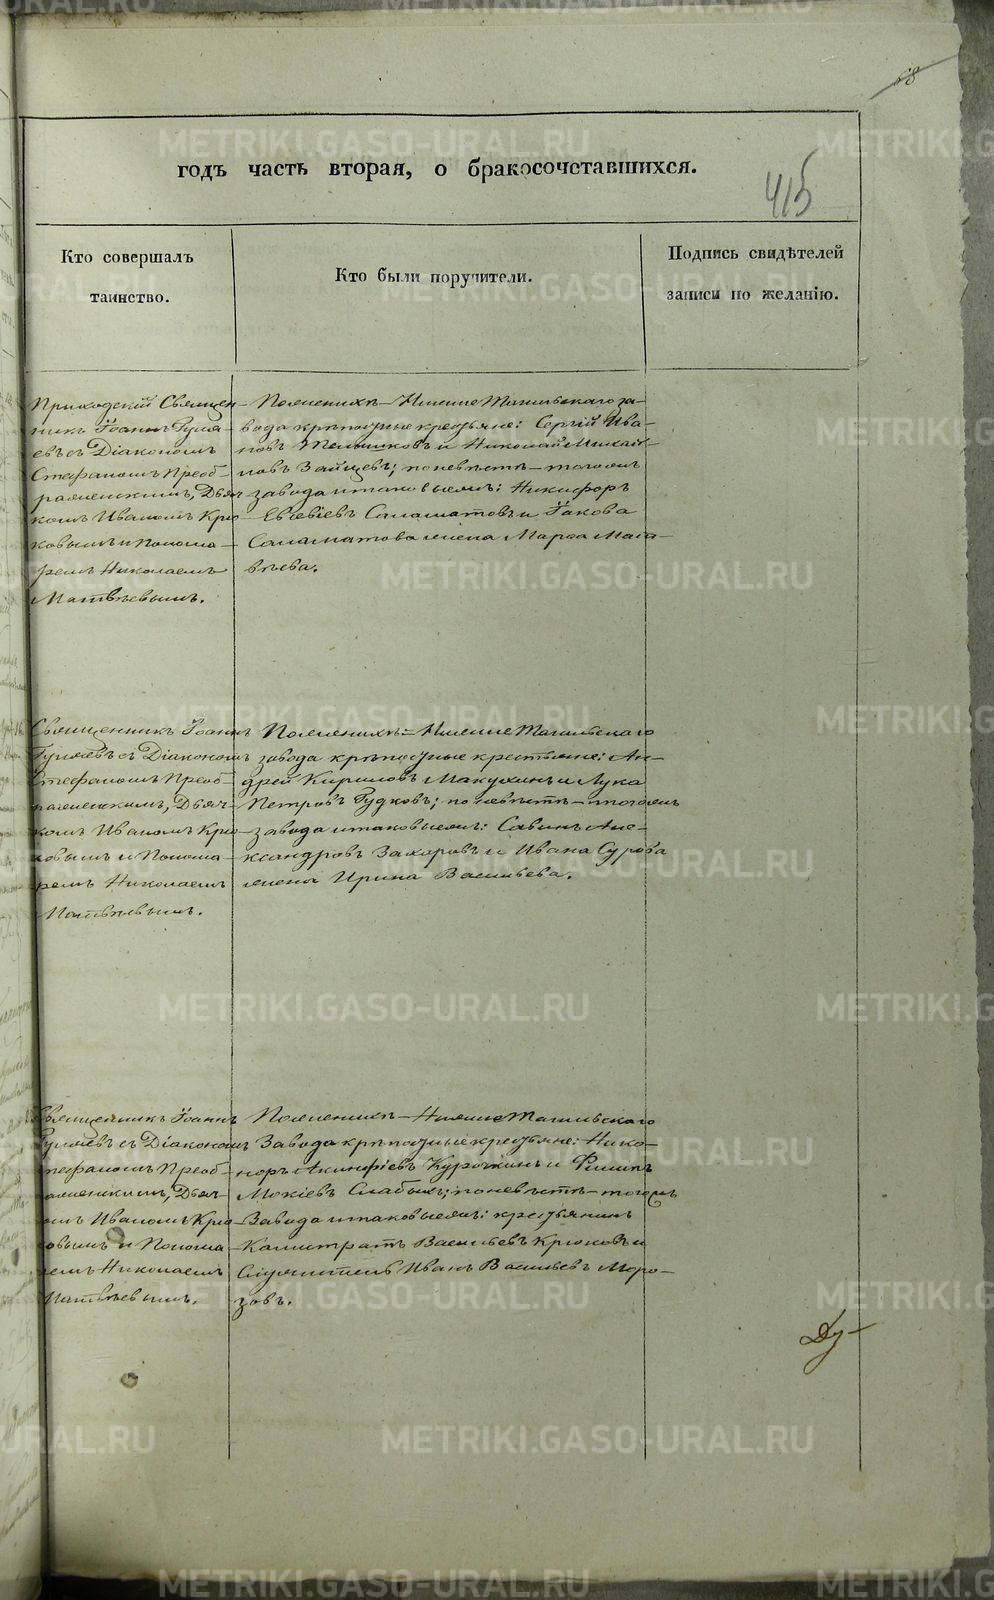 68
годъ часть вторая, о бракосочетавшихся.
415
Кто совершалъ
таинство.
Кто были поручители.
Подпись свидѣтелей
записи по желанію.
Приходскій Священ-
никъ Іоаннъ Гуля-
евъ съ Діакономъ
Стефаномъ Преоб-
раженскимъ, Дьяч-
комъ Иваномъ Крю-
ковымъ и Понома-
ремъ Николаемъ
Матвѣевымъ.
По женихѣ – Нижне Тагильскаго за-
вода крѣпостные крестьяне: Сергій Ива-
новъ и Николай Михай-
ловъ Зайцевъ; по невѣстѣ – тогожъ
завода и таковыежъ: Никифоръ
Евсевіевъ Саламатовъ и Іакова
Саламатова жена Марѳа Мат-
вѣева.
Священникъ Іоаннъ
Гуляевъ съ Діакономъ
Стефаномъ Преоб-
раженскимъ, Дьяч-
комъ Иваномъ Крю-
ковымъ и Понома-
ремъ Николаемъ
Матвѣевымъ.
По женихѣ – Нижне Тагильскаго
завода крѣпостные крестьяне: Ан-
дрей Кириловъ Макухинъ и Лука
Петровъ Рудковъ; по невѣстѣ – тогожъ
завода и таковыежъ: Савинъ Але-
ксандровъ Захаровъ и Ивана Сурова
жена Ирина Васильева.
Священникъ Іоаннъ
Гуляевъ съ Діакономъ
Стефаномъ Преоб-
раженскимъ, Дьяч-
комъ Иваномъ Крю-
ковымъ и Понома-
ремъ Николаемъ
Матвѣевымъ.
По женихѣ – Нижне Тагильскаго
Завода крѣпостные крестьяне: Нико-
норъ Акинфіевъ Курочкинъ и Филипъ
Мокіевъ Слабыхъ; по невѣстѣ – тогожъ
Завода и таковыежъ: крестьянинъ
Калистратъ Васильевъ Крюковъ и
Служитель Иванъ Васильевъ Моро-
зовъ.
METRIKI.GASO-URAL.RU